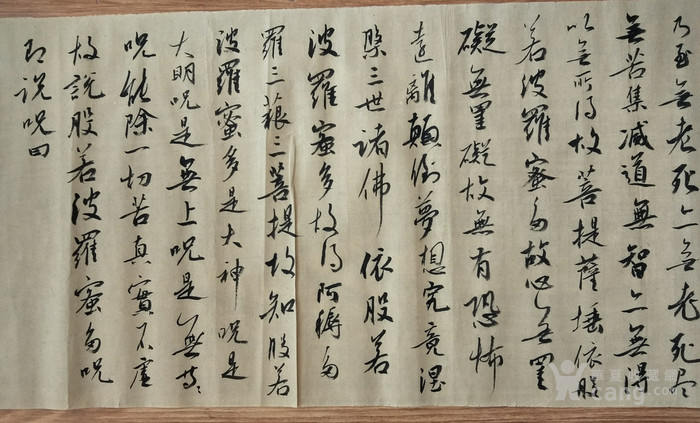 乃至无老死亦无老死尽
無苦集減道無智亦無得
以无所得故菩提薩埵依般
若波羅蜜多故心无罣
礙無罣礙故無有恐怖
遠離顛倒夢想究竟涅
槃三世诸佛依般若
波羅蜜多故得阿耨多
羅三藐三菩提故知般若
波羅蜜多是大神呪是
大明呪是無上呪是無等々
呪能除一切苦真實不虚
故説般若波羅蜜多呪
即说呪曰